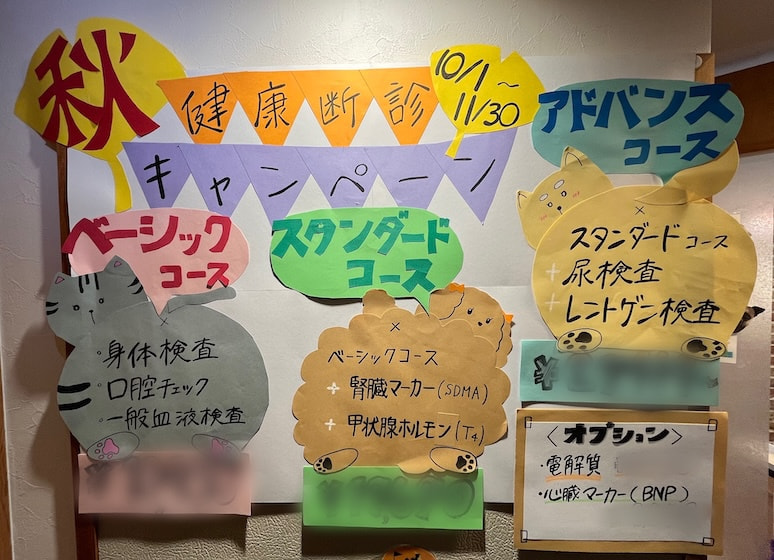 秋
健康断診
キャンペーン
10/1〜
11/30
ベーシック
コース
・身体検査
・口腔チェック
・一般血液検査
スタンダード
コース
ベーシックコース
+ 腎臓マーカー(SDMA)
+ 甲状腺ホルモン(T4)
アドバンス
コース
スタンダードコース
+ 尿検査
+ レントゲン検査
¥
<オプション>
・電解質
・心臓マーカー(BNP)